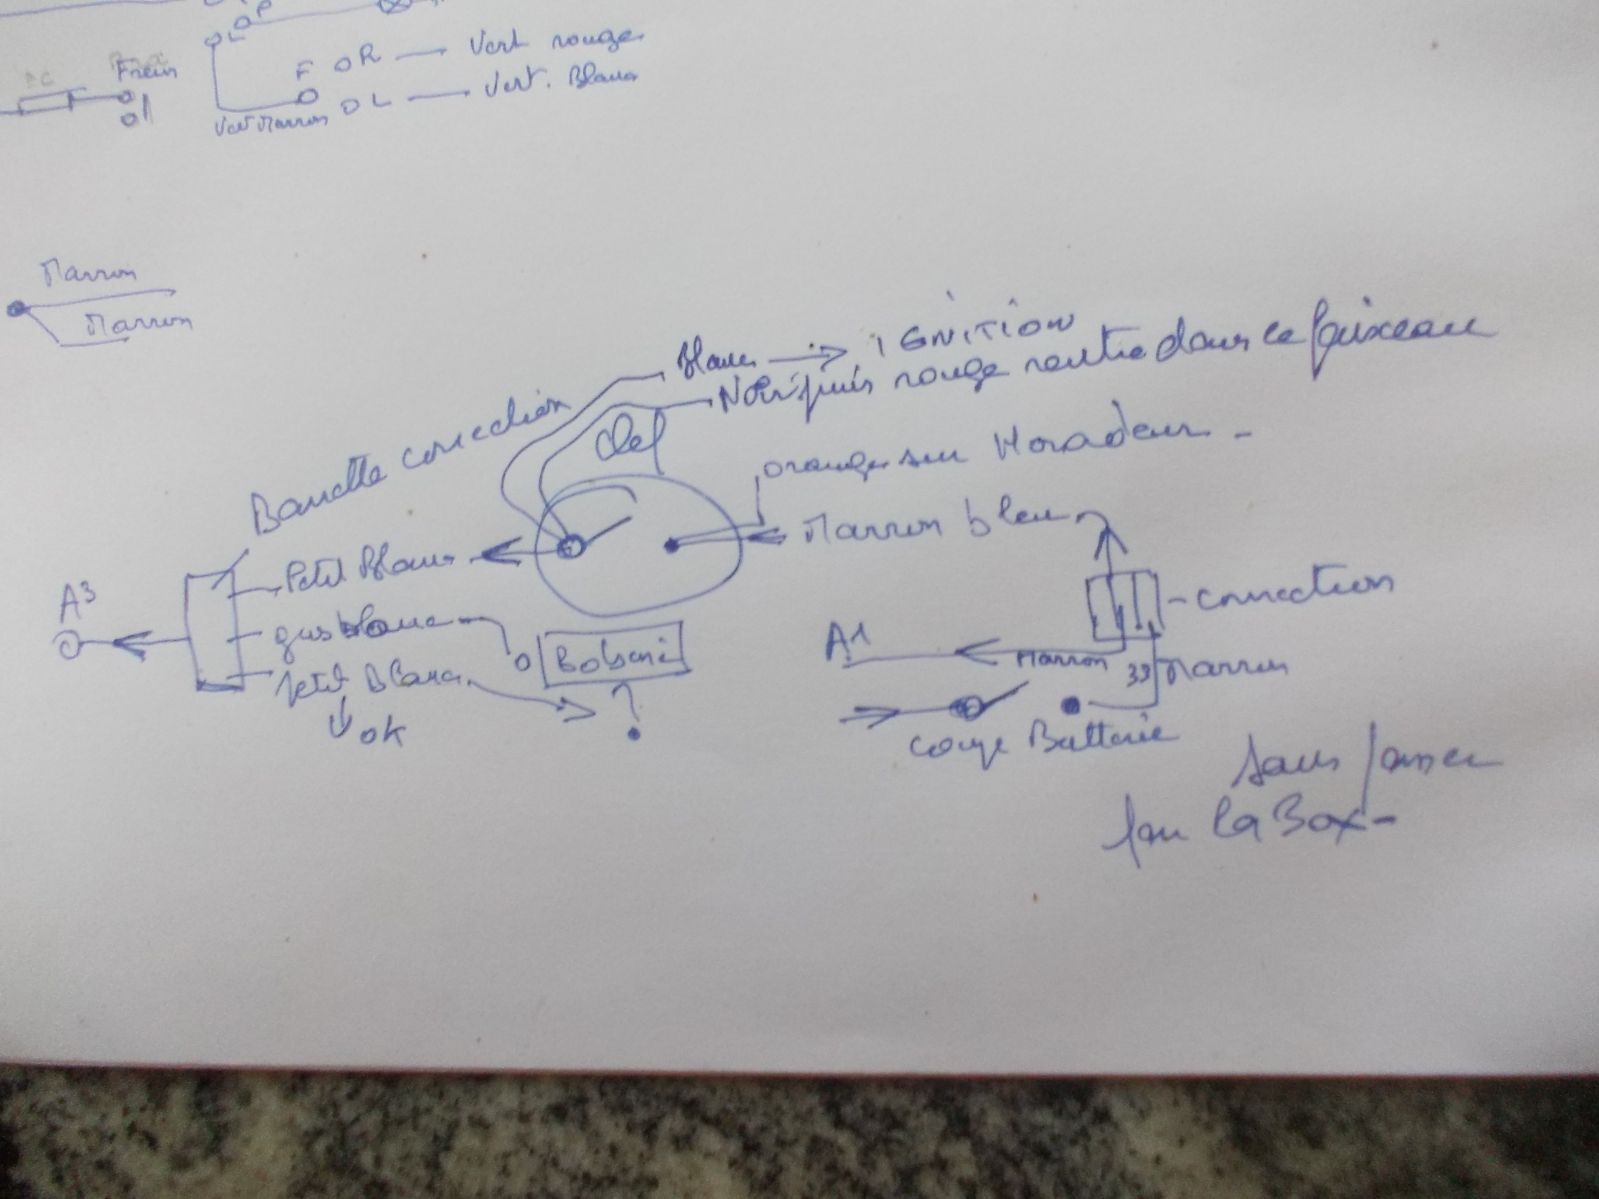 P
L
Frein
F OR Vert rouge
OL Vert. Blanc
Vert Marron
Marron
Marron
Blanc → IGNITION
Noir puis rouge rentre dans le faisceau
Clef
Barrette connection
orange sur Horadeur -
Marron bleu
Petit Blanc
A3
gus blanc
Petit Blanc
OK
Bobine
?
connection
A1
Marron
33 Marron
coupe Batterie
Sans passer
par la Box -